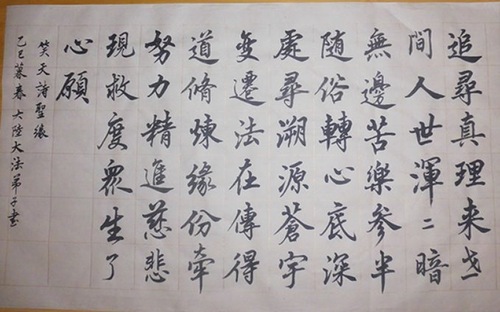 追尋真理来世
間人世渾〻暗
無邊苦樂參半
随俗轉心底深
處尋溯源蒼宇
变遷法在傳得
道脩煉緣份牽
努力精進慈悲
現救度眾生了
心願
笑天詩聖緣
乙巳暮春大陸大法弟子書